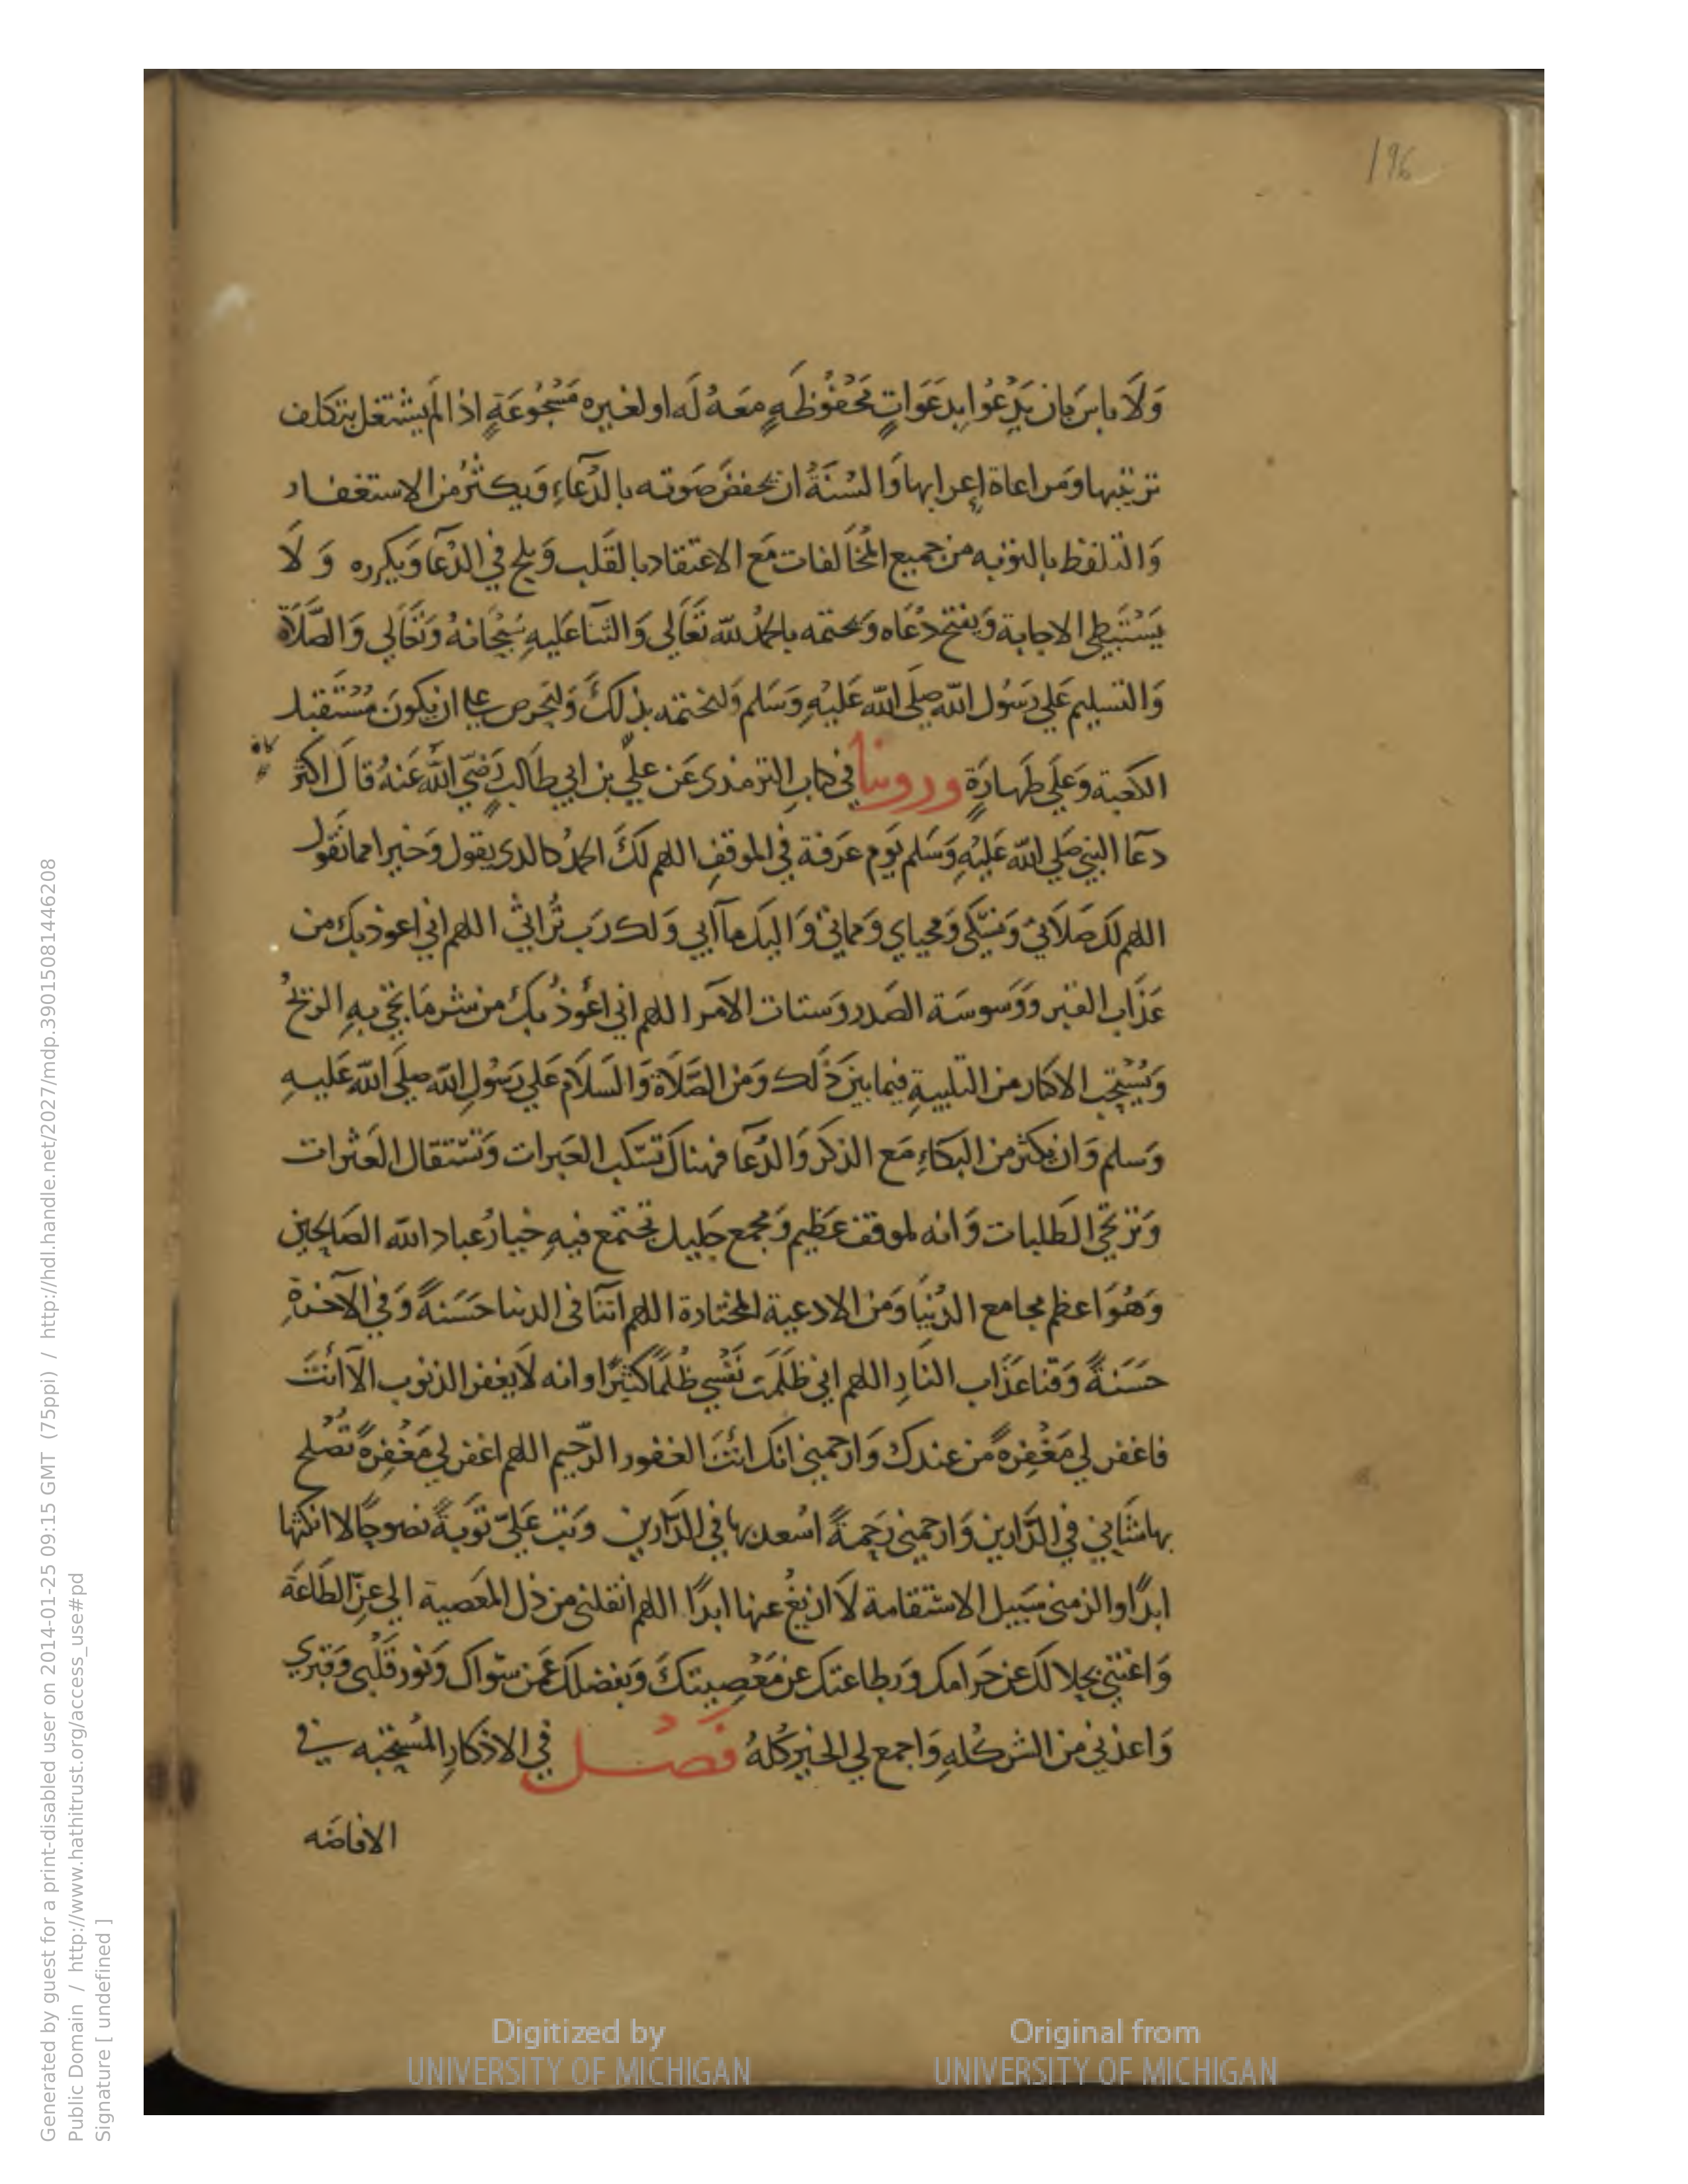 196
وَلَا باسَ بان يَدْعُوا بدَعَوَاتٍ مَحْفُوظَةٍ مَعَهُ لَه او لغيره مَسْجُوعَةٍ اذا لم يشتغل بتكلف
ترتيبها ومَراعاة إعرابها وَالسُنَةُ ان يخفضَ صَوته بالدُعَآءِ وَيكثرُ من الاستغفار
وَالتلفظ بالتوبه من جميع المُخَالفات مَع الاعتقاد بالقَلب وَيلح في الدُعَآ وَيكرره وَلَا
يَسْتَبطِي الاجابة وَيفتح دُعَاه وَيختمه بالحمْد لله تَعَالي وَالثنا عَليهِ سُبْحَانهُ وَتَعَالي وَالصَّلَاة
وَالتسليم عَلي رَسُول الله صلى الله عَليْهِ وَسَلم وَلنختمه بذلكَ وَليَحرص علي ان يكونَ مُسْتَقبل
الكعبة وَعَلي طَهارَةٍ وروينا في كتابِ الترمذى عَن علّي بن ابي طَالبٍ رَضيَ الله عَنهُ قالَ اكثر
دعآ النبي صَلي الله عَليْهِ وَسَلم يَوم عَرَفة في الموقفِ اللهم لكَ الحمدُ كالدى يقول وَخيرا مما نقول
اللهم لكَ صَلَاتي وَنسُكي وَمحياي وَمماتي وَاليكَ مآبي وَلك رَب تُراثي اللهم اني اعوذ بكَ من
عَذَابِ القبر وَوَسوسَة الصَدر وَستات الامر اللهم اني اعُوذُ بكَ من شر مَا تجي بهِ الريحُ
وَيُسْتحب الاكثار من التلبيةِ فيما بينَ ذَلك وَمن الصَّلَاة وَالسلَام عَلي رَسُولِ الله صلى الله عَليهِ
وَسلم وَان يكثر من البكاءِ مَع الذكر وَالدُعَآ فهناكَ تسكب العَبرات وَتسْتقال العَثرات
وَترتجي الطَلبات وَانه لموقف عَظيم وَمجمع جَليل تجتمع فيهِ خيارُ عباد الله الصَالحين
وَهُوَ اعظم مجامع الدُنيَا وَمن الادعية المختارة اللهم اتنا فى الدنيا حَسَنةً وَفي الآخرةِ
حَسَنةً وَقنا عَذَاب النارِ اللهم اني ظلمت نَفْسي ظُلمًا كثيرًا وانه لَا يغفر الذنوب الآ انتَ
فاغفر لي مَغْفِرةً من عندك وَارحمني انك انتَ الغفور الرَحيم اللهم اغفر لي مَغْفِرةً تُصْلح
بها شَاني في الدَارين وَارحمنى رَحمةً اسْعد بها في الدَارين وَتب عَليّ تَوبةً نصوحًا لا انكثها
ابدًا والزمنى سَبيل الاستقامة لَا ازيغُ عنها ابدًا اللهم انقلنى من ذل المعَصية الي عزِ الطَاعَة
وَاغنني بحلالكَ عن حَرامك وَبطاعتك عن مَعْصِيتكَ وَبفضلك عَمن سوَاكَ وَنور قَلْبى وَقبري
وَاعذني من الشر كُلهِ وَاجمع لي الخير كُلهُ فَصْل في الاذكارِ المُستحبه في
الافاضَه
Generated by guest for a print-disabled user on 2014-01-25 09:15 GMT (75ppi) / http://hdl.handle.net/2027/mdp.39015081446208
Public Domain / http://www.hathitrust.org/access_use#pd
Signature [ undefined ]
Digitized by
UNIVERSITY OF MICHIGAN
Original from
UNIVERSITY OF MICHIGAN